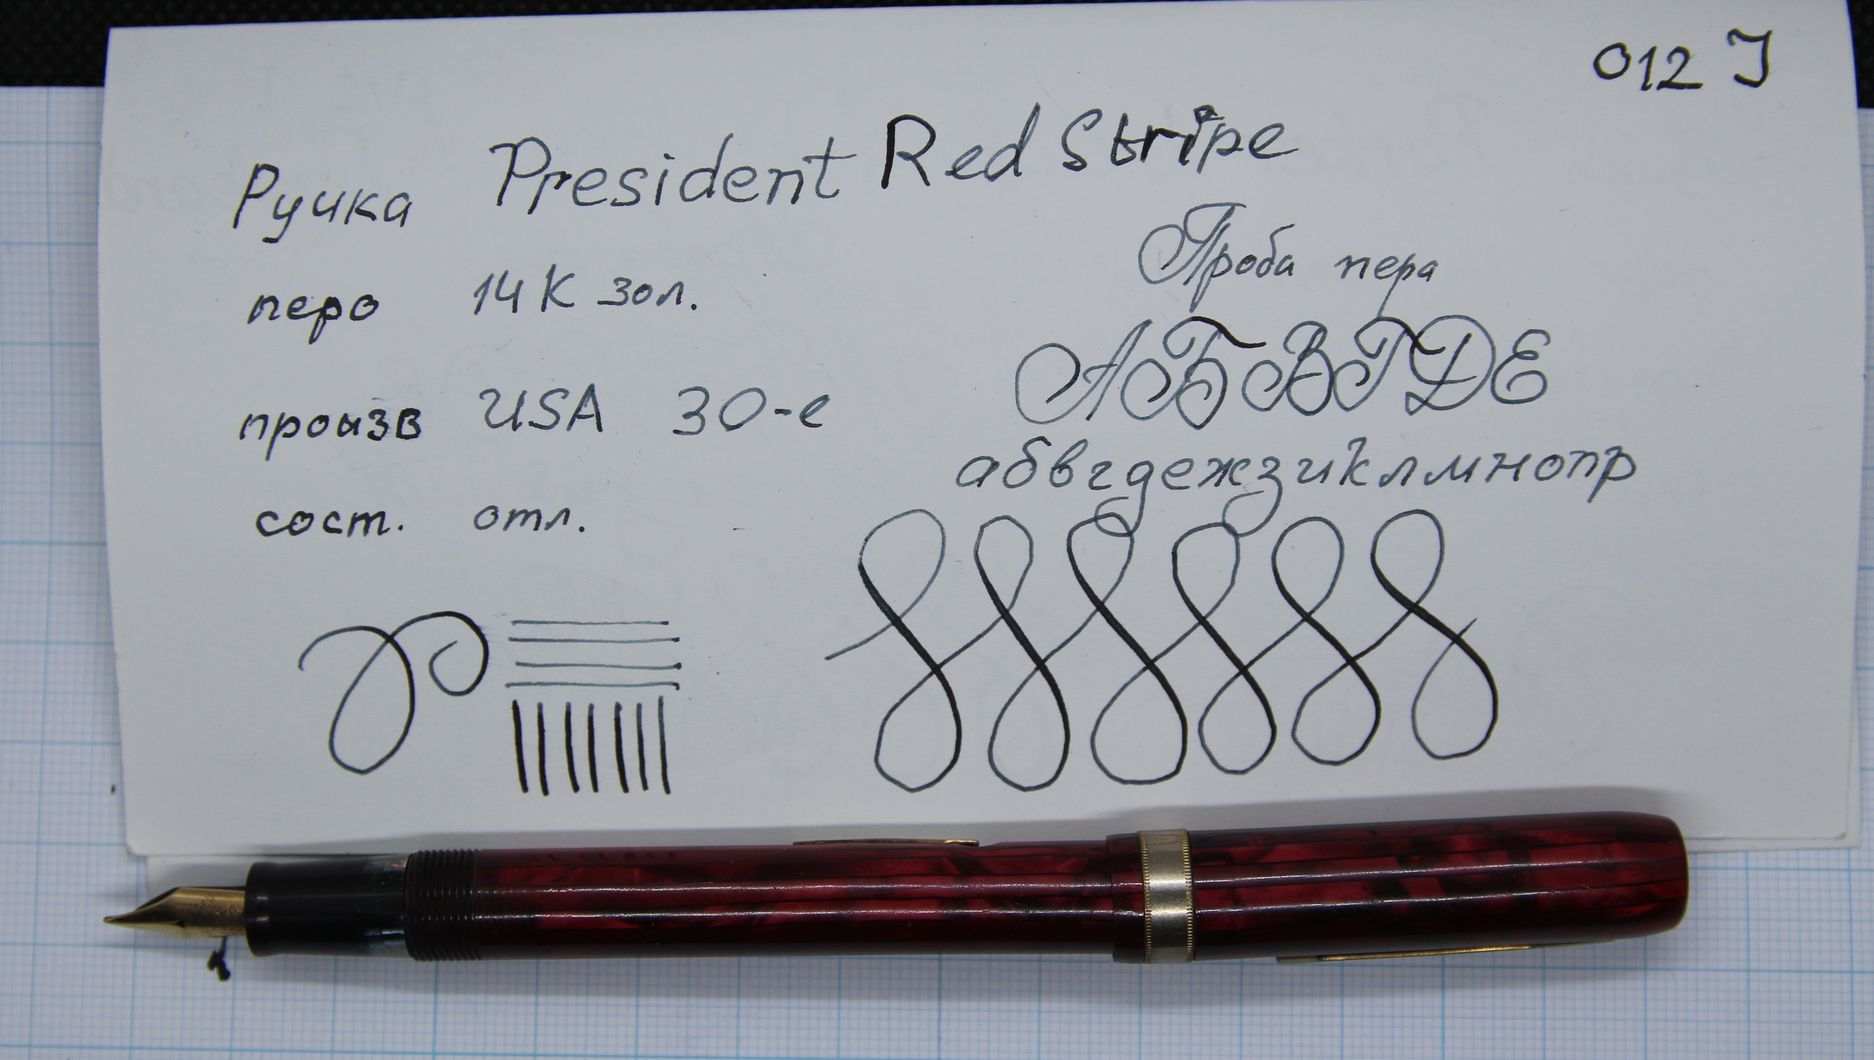 012 J
Ручка President Red Stripe
Проба пера
перо 14K зол.
АБВГДЕ
произв USA 30-е
абвгдежзиклмнопр
сост. отл.